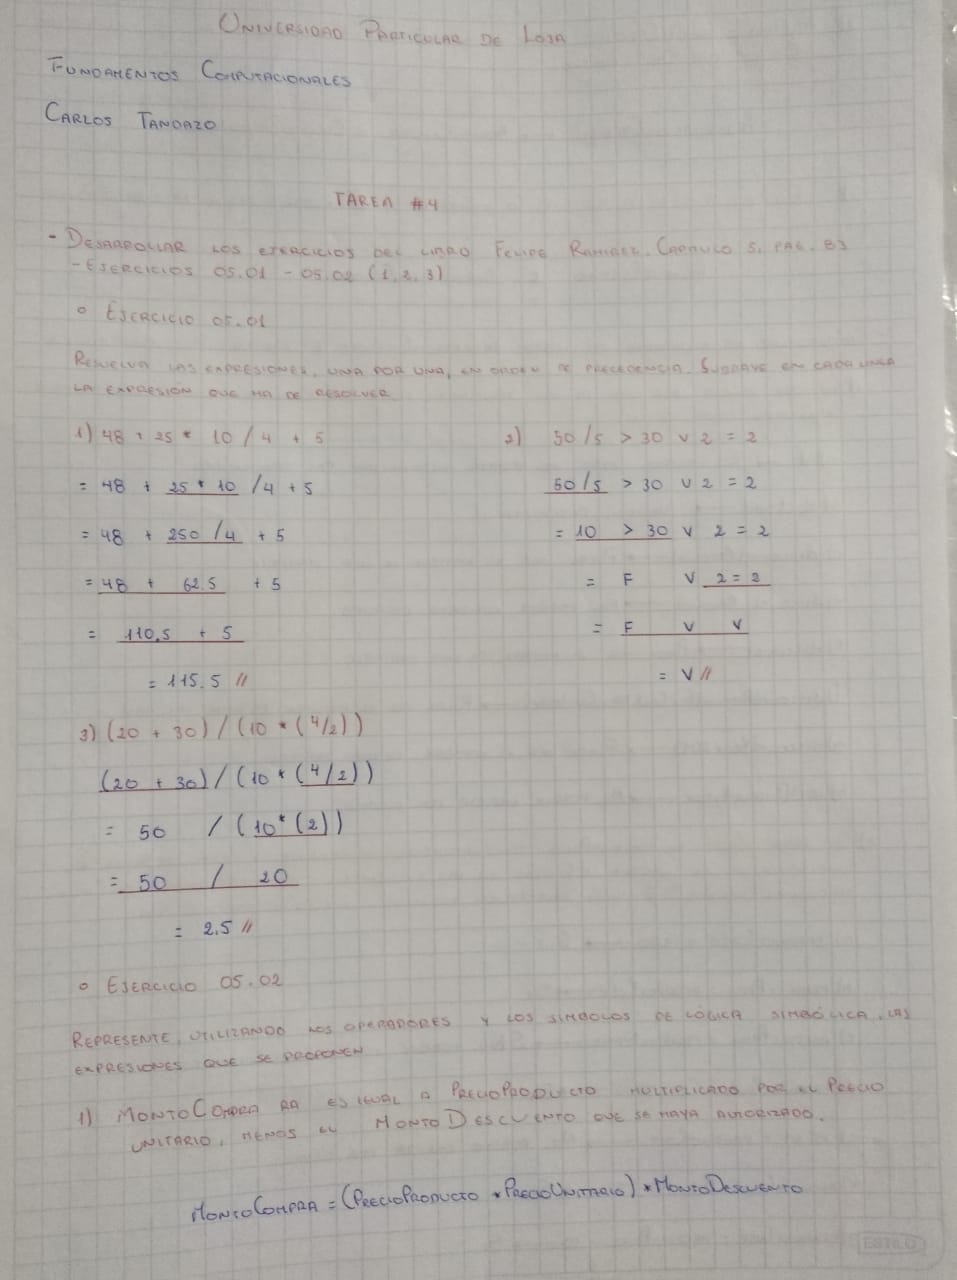 UNIVERSIDAD PARTICULAR DE LOJA
FUNDAMENTOS COMPUTACIONALES
CARLOS TANDAZO
TAREA #4
- DESARROLLAR LOS EJERCICIOS DEL LIBRO FELIPE RAMIREZ. CAPITULO 5. PAG. 83
- EJERCICIOS 05.01 - 05.02 (1,2,3)
o EJERCICIO 05.01
RESUELVA LAS EXPRESIONES, UNA POR UNA, EN ORDEN DE PRECEDENCIA. SUBRAYE EN CADA LINEA
LA EXPRESIÓN QUE HA DE RESOLVER
1) 48 + 25 * 10 / 4 + 5
= 48 + 25 * 10 / 4 + 5
= 48 + 250 / 4 + 5
= 48 + 62.5 + 5
= 110,5 + 5
= 115.5 //
2) 50 / 5 > 30 v 2 = 2
50 / 5 > 30 v 2 = 2
= 10 > 30 v 2 = 2
= F V 2 = 2
= F V V
= V //
3) (20 + 30) / (10 * (4/2))
(20 + 30) / (10 * (4/2))
= 50 / (10 * (2))
= 50 / 20
= 2.5 //
o EJERCICIO 05.02
REPRESENTE, UTILIZANDO LOS OPERADORES Y LOS SIMBOLOS DE LÓGICA SIMBÓLICA, LAS
EXPRESIONES QUE SE PROPONEN
1) MONTOCOMPRA RA ES IGUAL A PRECIOPRODUCTO MULTIPLICADO POR EL PRECIO
UNITARIO, MENOS EL MONTO DESCUENTO QUE SE HAYA AUTORIZADO.
MONTOCOMPRA = (PRECIOPRODUCTO * PRECIOUNITARIO) * MONTODESCUENTO
ESTILO